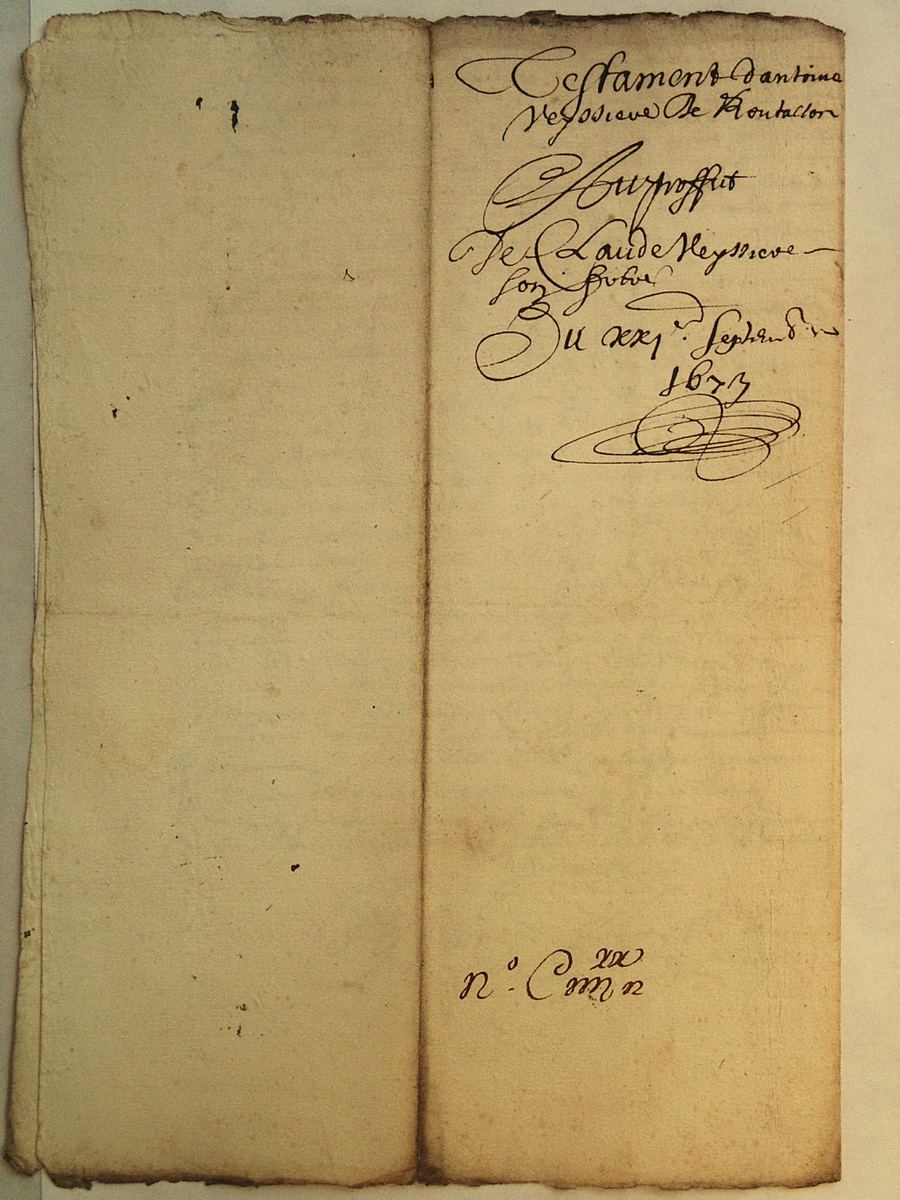 Testament dantoine
Veyssiere De Rontallon
Au proffit
De Claude Veyssiere
son frere
Du xxj.e Septembre
1673
n.o C